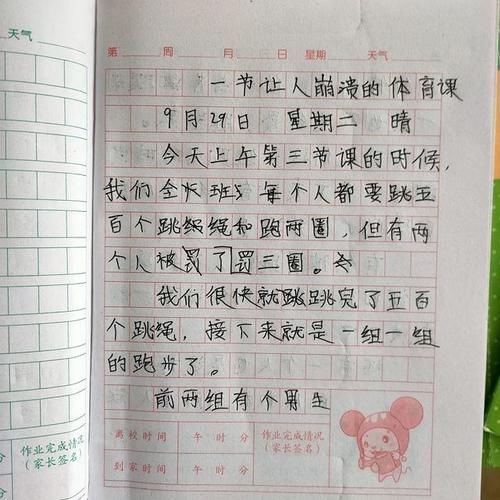 天气
第 周 月 日 星期 天气
一节让人崩溃的体育课
9月29日 星期二 晴
今天上午第三节课的时候，
我们全班每个人都要跳五
百个跳绳和跑两圈，但有两
个人被罚了罚三圈。
我们很快就跳跳完了五百
个跳绳，接下来就是一组一组
的跑步了。
前两组有个男生
离校时间 午 时 分 作业完成情况
（家长签名）
到家时间 午 时 分
作业完成情况
（家长签名）
分
分